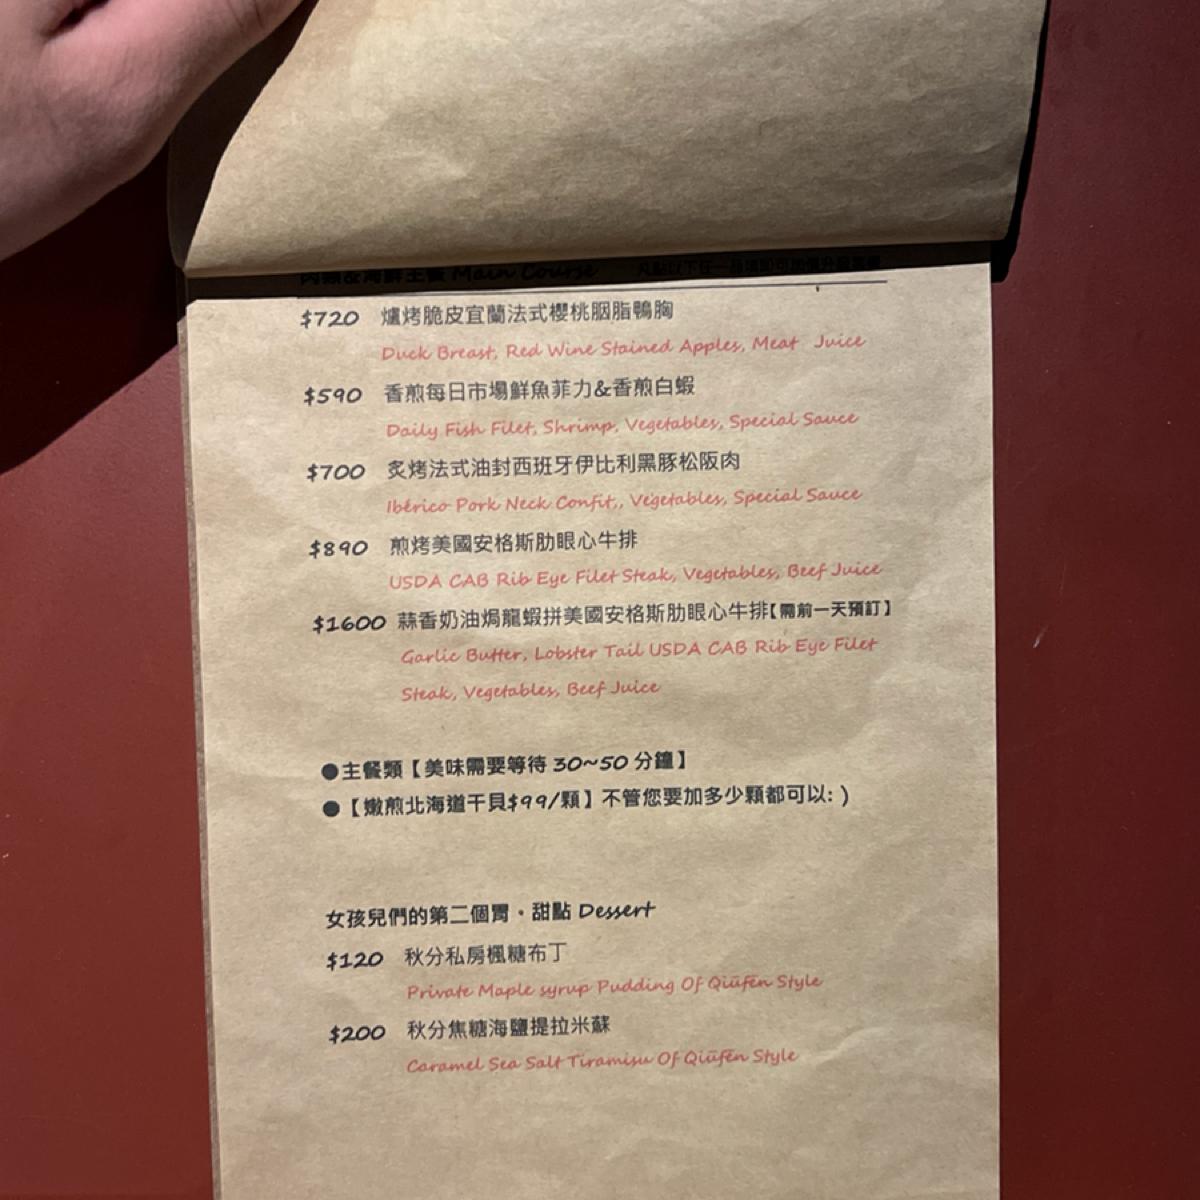 肉類&海鮮主餐 Main Course
$720 爐烤脆皮宜蘭法式櫻桃胭脂鴨胸
Duck Breast, Red Wine Stained Apples, Meat Juice
$590 香煎每日市場鮮魚菲力&香煎白蝦
Daily Fish Filet, Shrimp, Vegetables, Special Sauce
$700 炙烤法式油封西班牙伊比利黑豚松阪肉
Ibérico Pork Neck Confit,, Vegetables, Special Sauce
$890 煎烤美國安格斯肋眼心牛排
USDA CAB Rib Eye Filet Steak, Vegetables, Beef Juice
$1600 蒜香奶油焗龍蝦拼美國安格斯肋眼心牛排【需前一天預訂】
Garlic Butter, Lobster Tail USDA CAB Rib Eye Filet
Steak, Vegetables, Beef Juice
●主餐類【美味需要等待 30~50 分鐘】
●【嫩煎北海道干貝$99/顆】不管您要加多少顆都可以: )
女孩兒們的第二個胃・甜點 Dessert
$120 秋分私房楓糖布丁
Private Maple syrup Pudding Of Qiūfēn Style
$200 秋分焦糖海鹽提拉米蘇
Caramel Sea Salt Tiramisu Of Qiūfēn Style